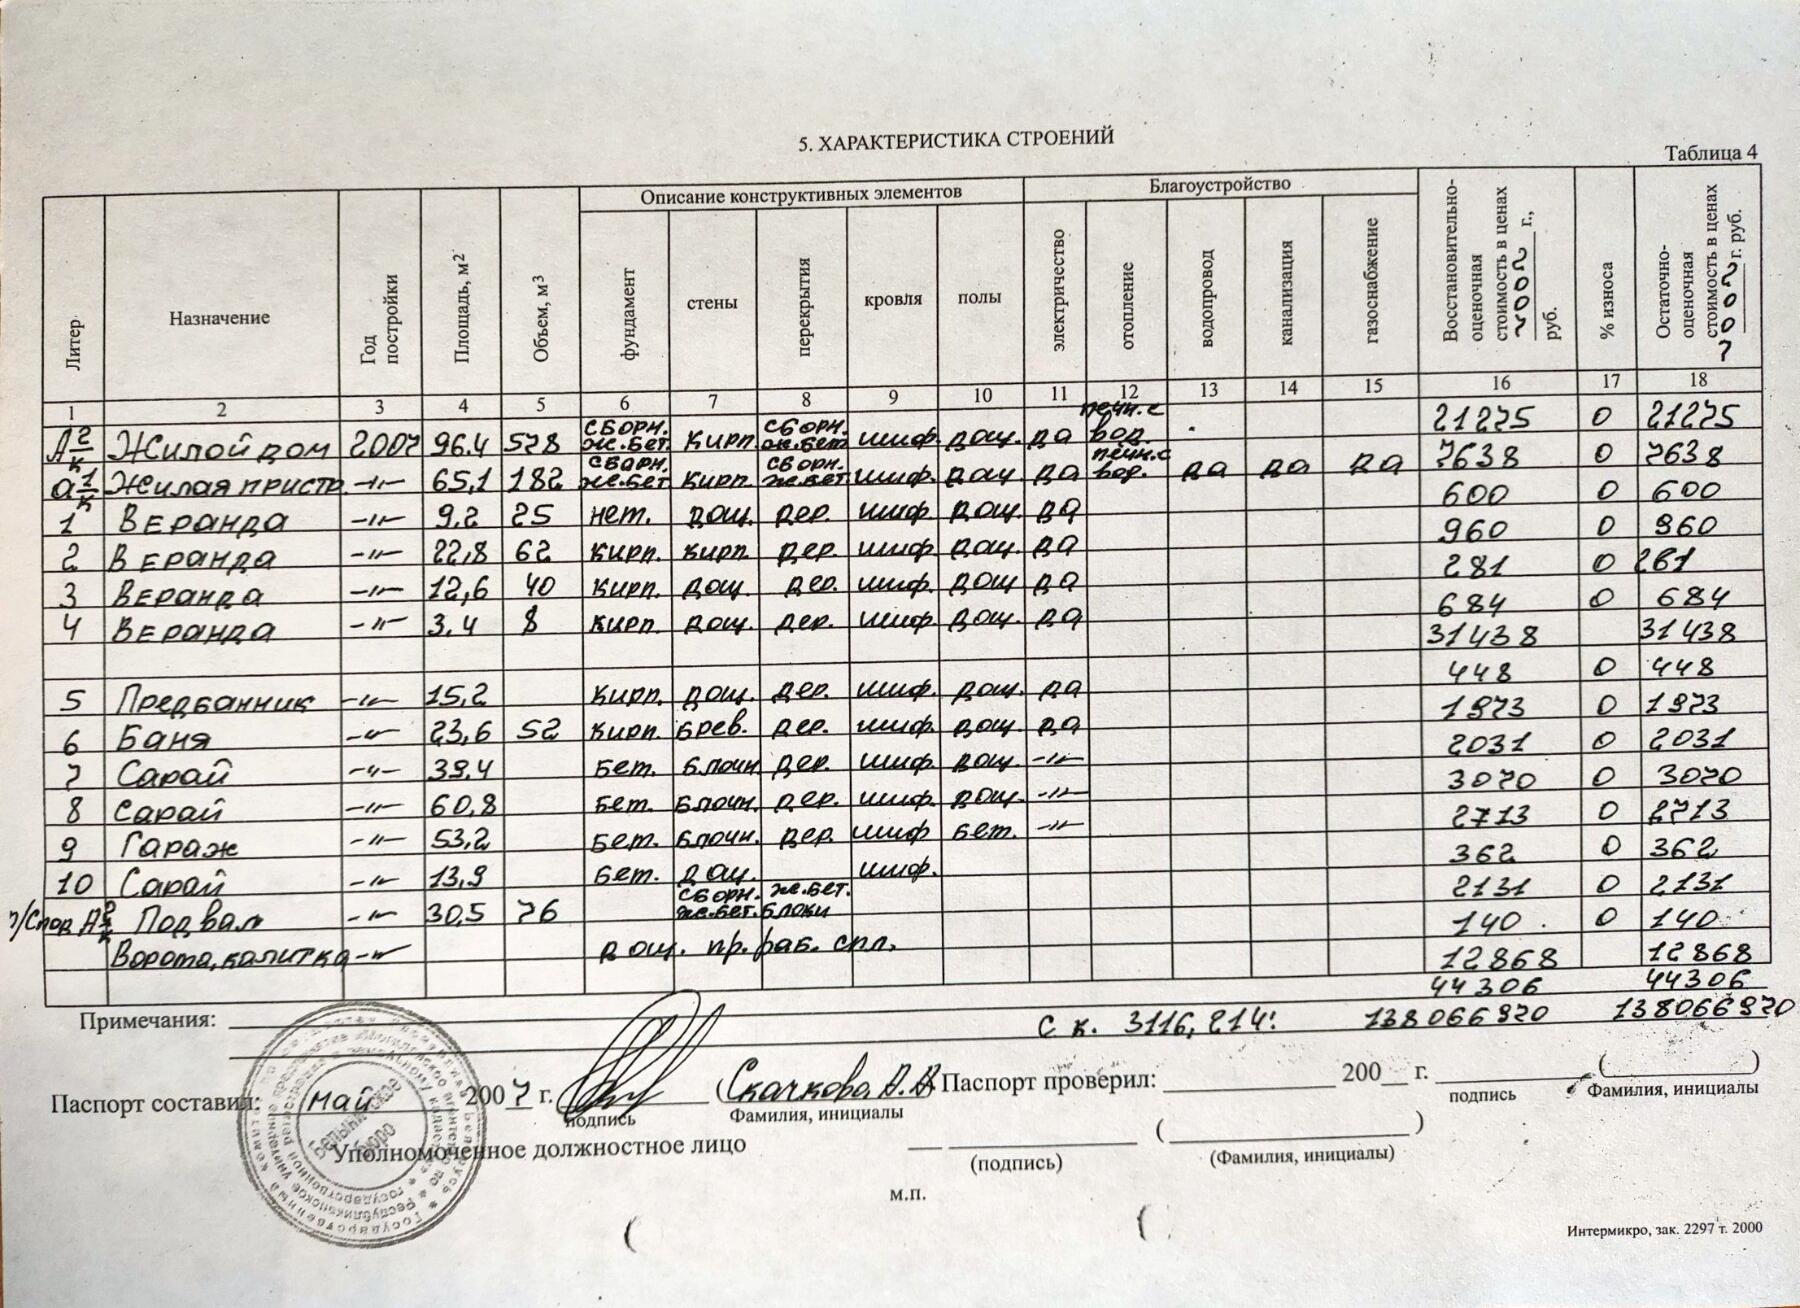 5. ХАРАКТЕРИСТИКА СТРОЕНИЙ
Таблица 4
Литер Назначение Год постройки Площадь, м² Объем, м³ Описание конструктивных элементов Благоустройство Восстановительно-оценочная стоимость в ценах 2007 г., руб. % износа Остаточно-оценочная стоимость в ценах 2007 г. руб.
фундамент стены перекрытия кровля полы электричество отопление водопровод канализация газоснабжение
1 2 3 4 5 6 7 8 9 10 11 12 13 14 15 16 17 18
А2/к Жилой дом 2007 96.4 578 сборн. ж.бет. кирп. сборн. ж.бет. шиф. дощ. да печн. с вод. 21275 0 21275
а1/к Жилая пристр. -"- 65,1 182 сборн. ж.бет. кирп. сборн. ж.бет. шиф. дощ. да печн. с вод. да да да 7638 0 7638
1 Веранда -"- 9,2 25 нет. дощ. дер. шиф. дощ. да 600 0 600
2 Веранда -"- 22,8 62 кирп. кирп. дер. шиф. дощ. да 960 0 960
3 Веранда -"- 12,6 40 кирп. дощ. дер. шиф. дощ. да 281 0 261
4 Веранда -"- 3,4 8 кирп. дощ. дер. шиф. дощ. да 684 0 684
31438 31438
5 Предбанник -"- 15,2 кирп. дощ. дер. шиф. дощ. да 448 0 448
6 Баня -"- 23,6 52 кирп. брев. дер. шиф. дощ. да 1973 0 1973
7 Сарай -"- 39,4 бет. блочн. дер. шиф. дощ. -"- 2031 0 2031
8 Сарай -"- 60,8 бет. блочн. дер. шиф. дощ. -"- 3070 0 3070
9 Гараж -"- 53,2 бет. блочн. дер. шиф. бет. -"- 2713 0 2713
10 Сарай -"- 13,9 бет. дощ. шиф. 362 0 362
А2/к Подвал -"- 30,5 76 сборн. ж.бет. ж.бет. блоки 2131 0 2131
Ворота, калитка -"- дощ. пр. раб. спл. 140 0 140
12868 12868
44306 44306
Примечания: с к. 3116,214: 138066970 138066970
Паспорт составил: май 2007 г. (Скачкова А.А) Паспорт проверил: 200__ г. ( )
подпись Фамилия, инициалы подпись Фамилия, инициалы
Уполномоченное должностное лицо ( )
(подпись) (Фамилия, инициалы)
м.п.
Белыничское бюро
Интермикро, зак. 2297 т. 2000